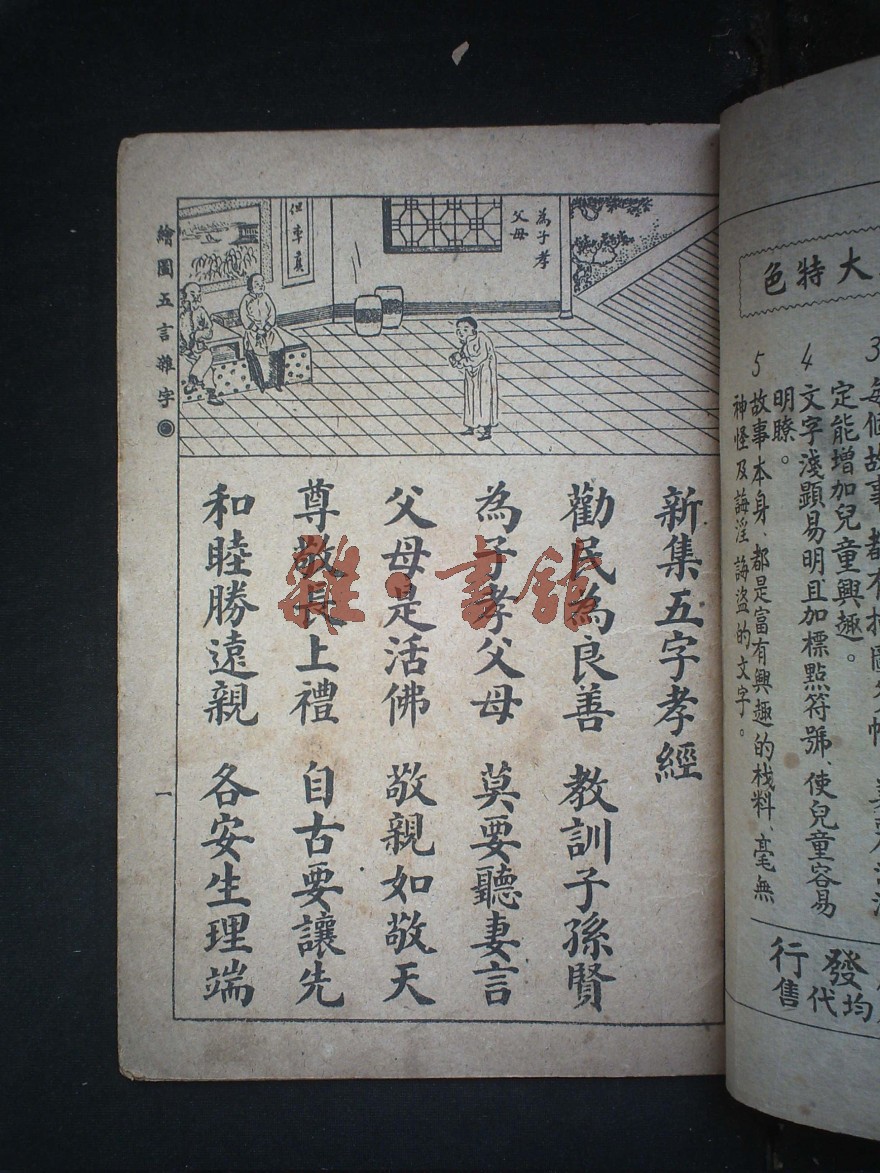 大特色
4 文字淺顯易明且加標點符號、使兒童容易
明瞭。
5 故事本身、都是富有興趣的材料、毫無
神怪及誨淫誨盜的文字。
定能增加兒童興趣。
發行
均代售
為子孝
父母
新集五字孝經
勸民為良善 教訓子孫賢
為子孝父母 莫要聽妻言
父母是活佛 敬親如敬天
尊敬長上禮 自古要讓先
和睦勝遠親 各安生理端
繪圖五言雜字
一
雜·書館